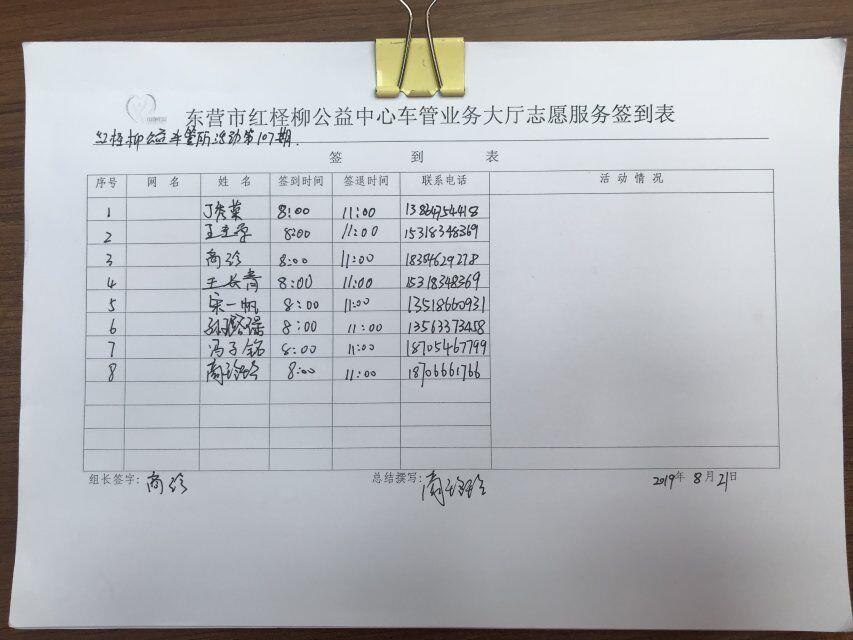 东营市红柽柳公益中心车管业务大厅志愿服务签到表
红柽柳公益车管所活动第107期.
签 到 表
序号 网 名 姓 名 签到时间 签退时间 联系电话 活 动 情 况
1 8:00 11:00 13864754418
2 8:00 11:00 15318348369
3 商玲 8:00 11:00 18354629278
4 王长青 8:00 11:00 15318348369
5 宋一帆 8:00 11:00 13518660931
6 8:00 11:00 13563373458
7 冯子铭 8:00 11:00 18705467799
8 8:00 11:00 18706661766
组长签字: 商玲 总结撰写: 2019年 8月21日